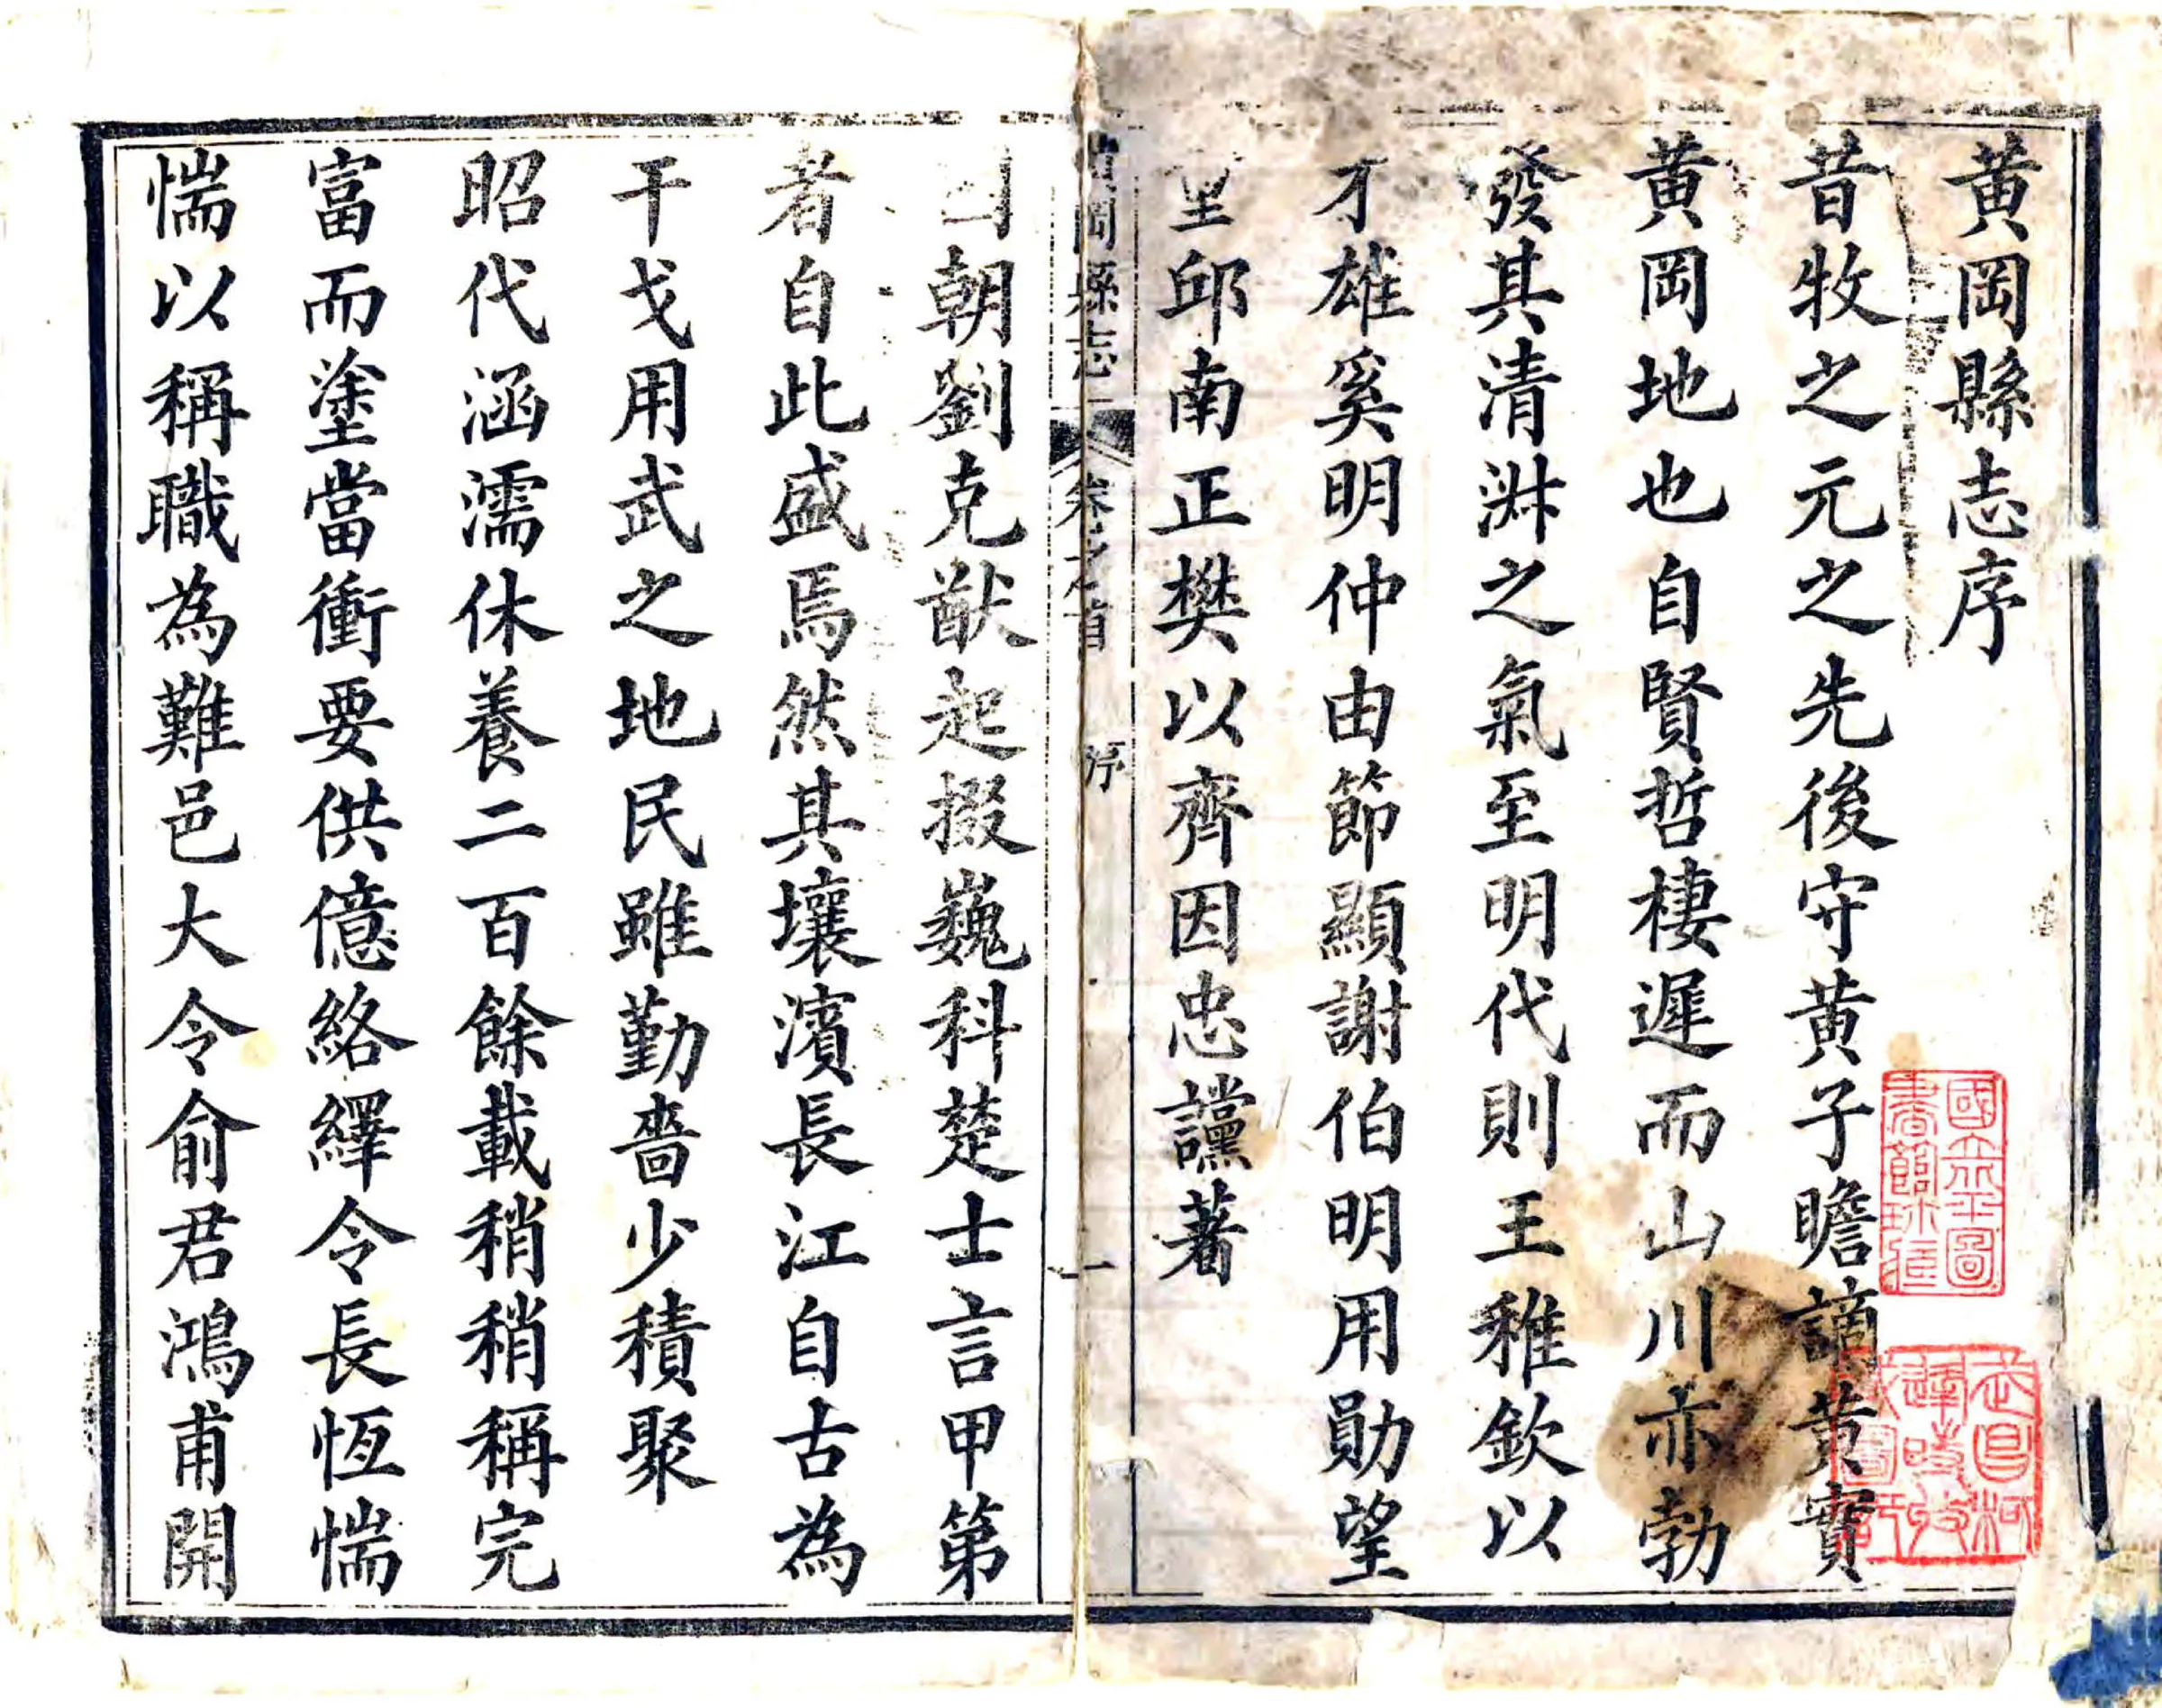 黄岡縣志序
昔牧之元之先後守黄子瞻謫黄實
黄岡地也自賢哲棲遲而山川亦勃
發其清淑之氣至明代則王稚欽以
才雄奚明仲由節顯謝伯明用勛望
至邱南正樊以齊因忠讜著
黄岡縣志
卷之首
序
一
國朝劉克猷起掇巍科楚士言甲第
者自此盛焉然其壤濱長江自古為
干戈用武之地民雖勤嗇少積聚
昭代涵濡休養二百餘載稍稍稱完
富而塗當衝要供億絡繹令長恆惴
惴以稱職為難邑大令俞君鴻甫開
國立北平圖
書館珍藏
武昌柯
逢時收
藏圖記